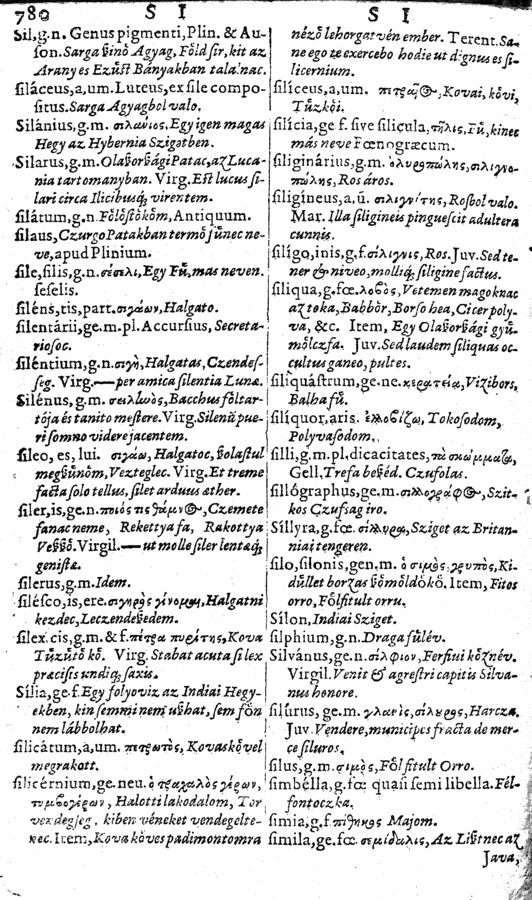 780 S I
S I
Sil, g.n. Genus pigmenti, Plin. & Au-
ſon. Sarga ſinö Agyag, Föld ſir, kit az
Arany es Ezűſt Bányakban talalnac.
ſiláceus, a, um. Luteus, ex ſile compo-
ſitus. Sarga Agyagbol valo.
Silánius, g.m. Egy igen magas
Hegy az Hybernia Szigetben.
Silarus, g.m. Olaſſori Patac, az Luca-
nia tartomanyban. Virg. Eſt lucus ſi-
lari circa Ilicibuſq; virentem.
ſilátum, g.n. Antiquum.
ſilaus, Czurgo Patakban termö fűnec ne-
ve, apud Plinium.
ſile, ſilis, g.n. σέσελι, Egy Fű, mas neven.
ſeſelis.
ſiléns, tis, part. σιγάων, Halgato.
ſilentárii, ge.m. pl. Accurſius, Secreta-
rioſoc.
ſiléntium, g.n. σιγὴ, Halgatas, Czendeſ-
ſeg. Virg.—per amica ſilentia Lunæ.
Silénus, g.m. σειλωὸς, Bacchus föltar-
tója és tanito meſtere. Virg. Silenū pue-
ri ſomno videre jacentem.
ſileo, es, lui. σιγάω, Halgatoc,
Vezteglec. Virg. Et treme
facta ſolo tellus, ſilet arduus æther.
ſiler, is, ge.n. Czemete
fanac neme, Rekettya fa, Rakottya
Virgil.—ut molle ſiler lentæq;
geniſtæ.
ſilerus, g.m. Idem.
ſiléſco, is, ere. σιγηρὸς γίνομαι, Halgatni
kezdec, Leczendeſedem.
ſilex, cis, g.m. & f. πέτρα πυρίτης, Kova
Tűzűtö kö. Virg. Stabat acuta ſilex
præciſis undiq; ſaxis.
Sília, ge.f. Egy folyoviz az Indiai Hegy-
ekben, kin ſemmi nem uſhat, ſem fön
nem lábbolhat.
ſilicátum, a, um. πετρωτὸς, Kovaskövel
megrakott.
ſilicérnium, ge.neu. ὁ τραχαλὸς γέρων,
τυμβογέρων, Halotti lakodalom, Tor
vendegſeg, kiben véneket vendegelte-
nec. Item, Kova köves padimontomra
nézö lehorgat vén ember. Terent. Sa-
ne ego te exercebo hodie ut dignus es ſi-
licernium.
ſilíceus, a, um. Kovai, kövi,
Tűzköi.
ſilícia, ge f. ſive ſilicula, τῆλις, Fű, kinec
más neve Fœnogræcum.
ſiliginárius, g.m. ὀλυροπώλης, σιλιγνο-
πώλης, Ros áros.
ſilígineus, a, ū. σιλιγνίτης, Rosbol valo.
Mar. Illa ſiligineis pingueſcit adultera
cunnis.
ſilígo, inis, g.f. σίλιγνις, Ros. Juv. Sed te-
ner & niveo, molliq; ſiligine factus.
ſiliqua, g.fœ. λοβὸς, Vetemen magoknac
az toka, Babbör, Borſo hea, Cicer poly-
va, &c. Item, Egy gyű-
mölczfa. Juv. Sed laudem ſiliquas oc-
cultus ganeo, pultes.
ſiliquáſtrum, ge.ne. κερατεία, Vizibors,
Balhafű.
ſilíquor, aris. ἐλλοβίζω, Tokoſodom,
Polyvaſodom.
ſilli, g.m. pl. dicacitates,
Gell. Trefa beſéd. Czufolas.
ſillógraphus, ge.m. Szit-
kos Czufsag iro.
Síllyra, g.fœ. σίλλυρα, Sziget az Britan-
niai tengeren.
ſilo, ſilonis, gen.m. ὁ σιμὸς, γρυπὸς, Ki-
dűllet borzas Item, Fitos
orro, Fölfitult orru.
Sílon, Indiai Sziget.
ſilphium, g.n. Draga fűlév.
Silvánus, ge.n. σίλφιον, Ferfiui köznév.
Virgil. Venit & agreſtri capitis Silva-
nus honore.
ſilúrus, ge.m. γλανὶς, σίλουρος, Harcza.
Juv. Vendere, municipes fracta de mer-
ce ſiluros.
ſilus, g.m. σιμὸς, Fölfitult Orro.
ſimbélla, g.fœ quaſi ſemi libella. Fél-
fontoczka.
ſimia, g.f. πίθηκος Majom.
ſimila, ge.fœ. σεμίδαλις, Az Liſtnec az
Java,